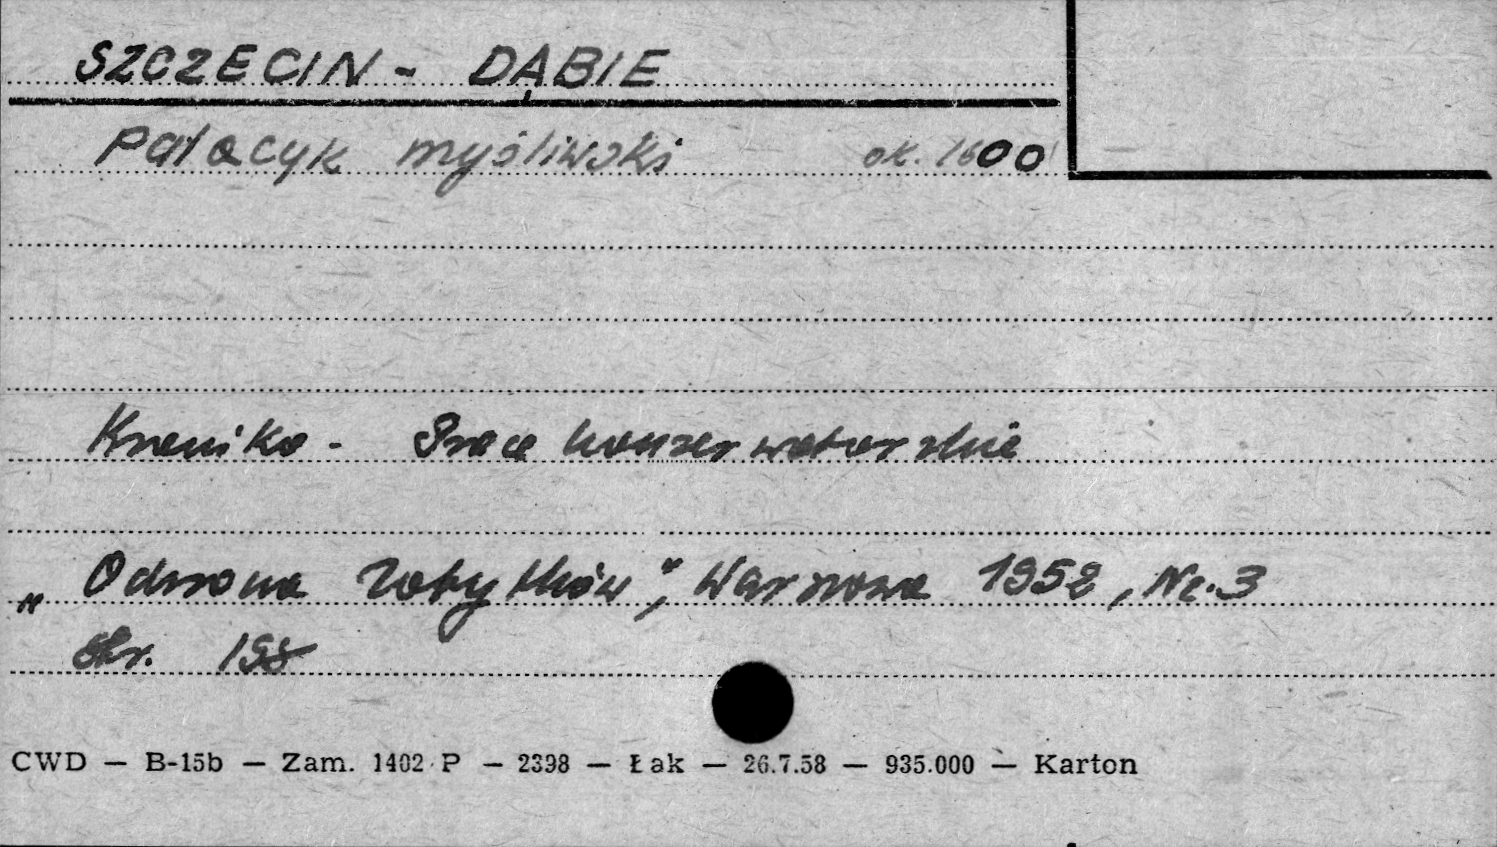 SZCZECIN - DĄBIE
Pałacyk myśliwski ok. 1600
Kronika - Prace konserwatorskie
„Ochrona Zabytków", Warszawa 1952, Nr. 3
str. 198
CWD — B-15b — Zam. 1402 P — 2398 — Łak — 26.7.58 — 935.000 — Karton